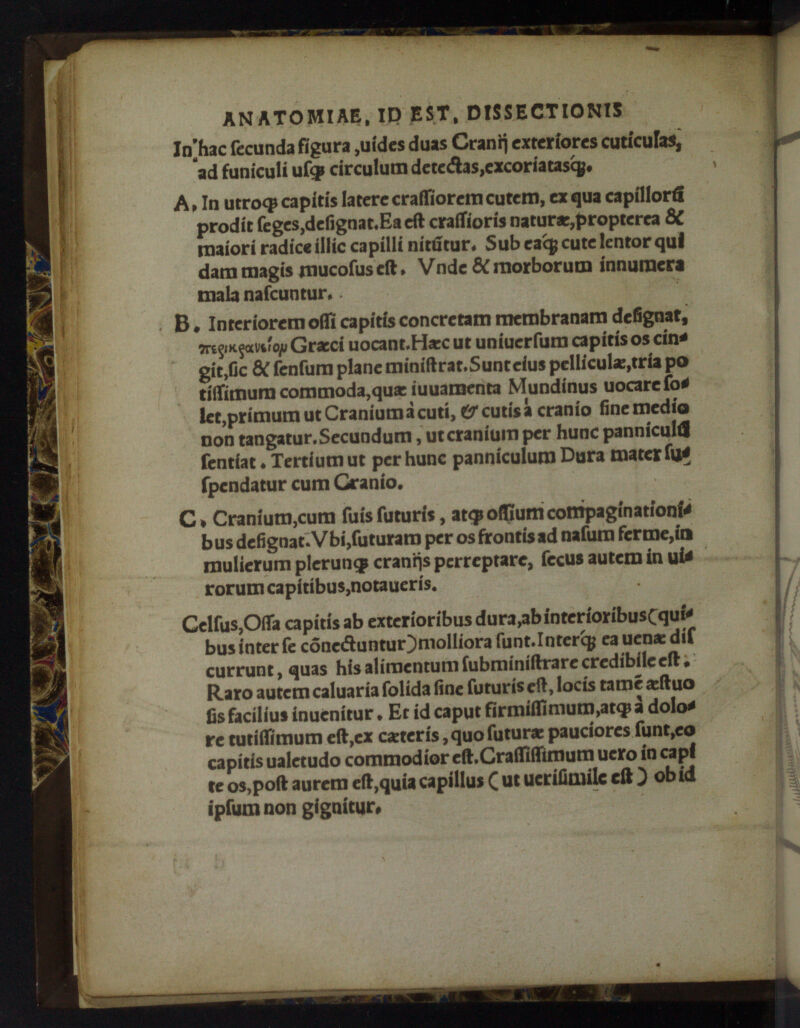 ANATOMIAE, ID EST, DISSECTIONIS
In hac ſecunda figura ,uides duas Cranij exteriores cuticulas,
ad funiculi uſqꝫ circulum detectas,excoriatasq́ꝫ.
A, In utroqꝫ capitis latere craſſiorem cutem, ex qua capillorũ
prodit ſeges,deſignat.Ea eſt craſſioris naturæ,propterea &
maiori radice illic capilli nitũtur. Sub eaq́ꝫ cute lentor qui
dam magis mucoſus eſt. Vnde & morborum innumera
mala naſcuntur.
B. Interiorem oſſi capitis concretam membranam deſignat,
περικρανίον Græci uocant.Hæc ut uniuerſum capitis os cin⸗
git,ſic & ſenſum plane miniſtrat.Sunt eius pelliculæ,tria po
tiſſimum commoda,quæ iuuamenta Mundinus uocare ſo⸗
let,primum ut Cranium à cuti, & cutis à cranio ſine medio
non tangatur.Secundum, ut cranium per hunc panniculũ
ſentiat. Tertium ut per hunc panniculum Dura mater ſu⸗
ſpendatur cum Cranio.
C, Cranium,cum ſuis ſuturis, atqꝫ oſſium compaginationi⸗
bus deſignat.Vbi,ſuturam per os frontis ad naſum ferme,in
mulierum plerunqꝫ cranijs perreptare, ſecus autem in ui⸗
rorum capitibus,notaueris.
Celſus,Oſſa capitis ab exterioribus dura,ab interioribus(qui⸗
bus inter ſe cõnectuntur)molliora ſunt.Interq́ꝫ ea uenæ diſ
currunt, quas his alimentum ſubminiſtrare credibile eſt.
Raro autem caluaria ſolida ſine ſuturis eſt, locis tamẽ æſtuo
ſis facilius inuenitur. Et id caput firmiſſimum,atqꝫ à dolo⸗
re tutiſſimum eſt,ex cæteris, quo ſuturæ pauciores ſunt,eo
capitis ualetudo commodior eſt.Craſſiſſimum uero in capi
te os,poſt aurem eſt,quia capillus ( ut ueriſimile eſt ) ob id
ipſum non gignitur.